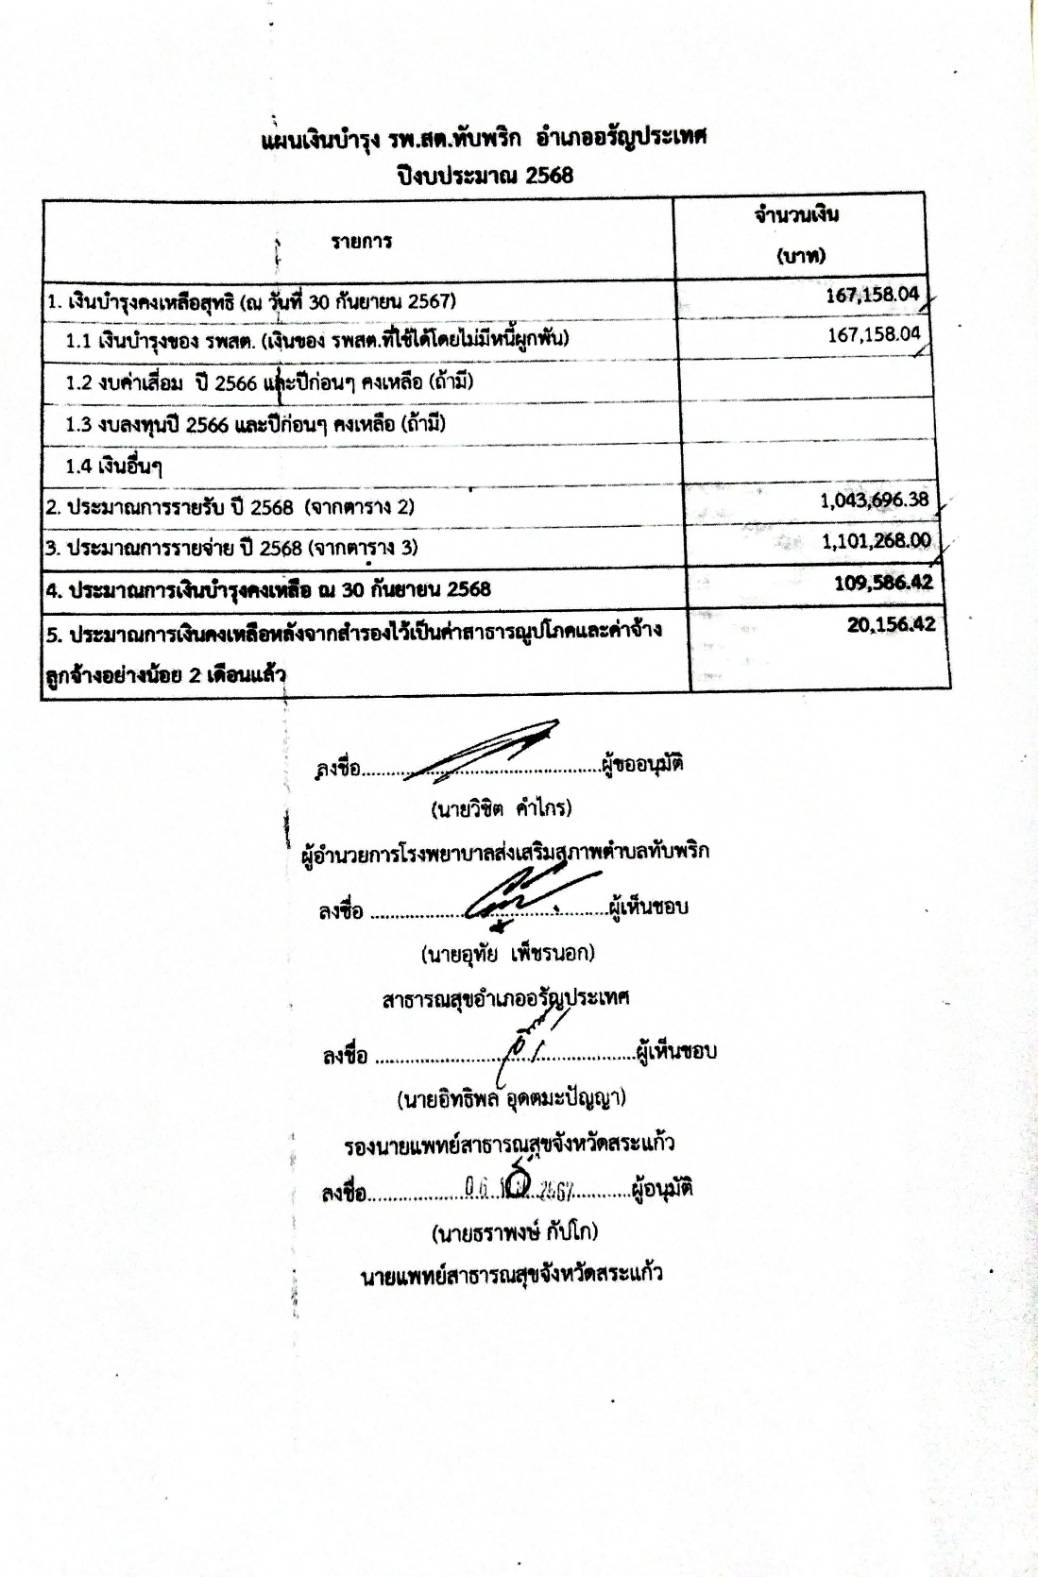 แผนเงินบำรุง รพ.สต.ทับพริก อำเภออรัญประเทศ
ปีงบประมาณ 2568
รายการ
จำนวนเงิน
(บาท)
1. เงินบำรุงคงเหลือสุทธิ (ณ วันที่ 30 กันยายน 2567) 167,158.04
1.1 เงินบำรุงของ รพสต. (เงินของ รพสต.ที่ใช้ได้โดยไม่มีหนี้ผูกพัน) 167,158.04
1.2 งบค่าเสื่อม ปี 2566 และปีก่อนๆ คงเหลือ (ถ้ามี)
1.3 งบลงทุนปี 2566 และปีก่อนๆ คงเหลือ (ถ้ามี)
1.4 เงินอื่นๆ
2. ประมาณการรายรับ ปี 2568 (จากตาราง 2) 1,043,696.38
3. ประมาณการรายจ่าย ปี 2568 (จากตาราง 3) 1,101,268.00
4. ประมาณการเงินบำรุงคงเหลือ ณ 30 กันยายน 2568 109,586.42
5. ประมาณการเงินคงเหลือหลังจากสำรองไว้เป็นค่าสาธารณูปโภคและค่าจ้าง 20,156.42
ลูกจ้างอย่างน้อย 2 เดือนแล้ว
ลงชื่อ..........................................ผู้ขออนุมัติ
(นายวิชิต คำไกร)
ผู้อำนวยการโรงพยาบาลส่งเสริมสุขภาพตำบลทับพริก
ลงชื่อ ..........................................ผู้เห็นชอบ
(นายอุทัย เพ็ชรนอก)
สาธารณสุขอำเภออรัญประเทศ
ลงชื่อ .............................................ผู้เห็นชอบ
(นายอิทธิพล อุดตมะปัญญา)
รองนายแพทย์สาธารณสุขจังหวัดสระแก้ว
ลงชื่อ....................06 2567.............ผู้อนุมัติ
(นายธราพงษ์ กัปโก)
นายแพทย์สาธารณสุขจังหวัดสระแก้ว